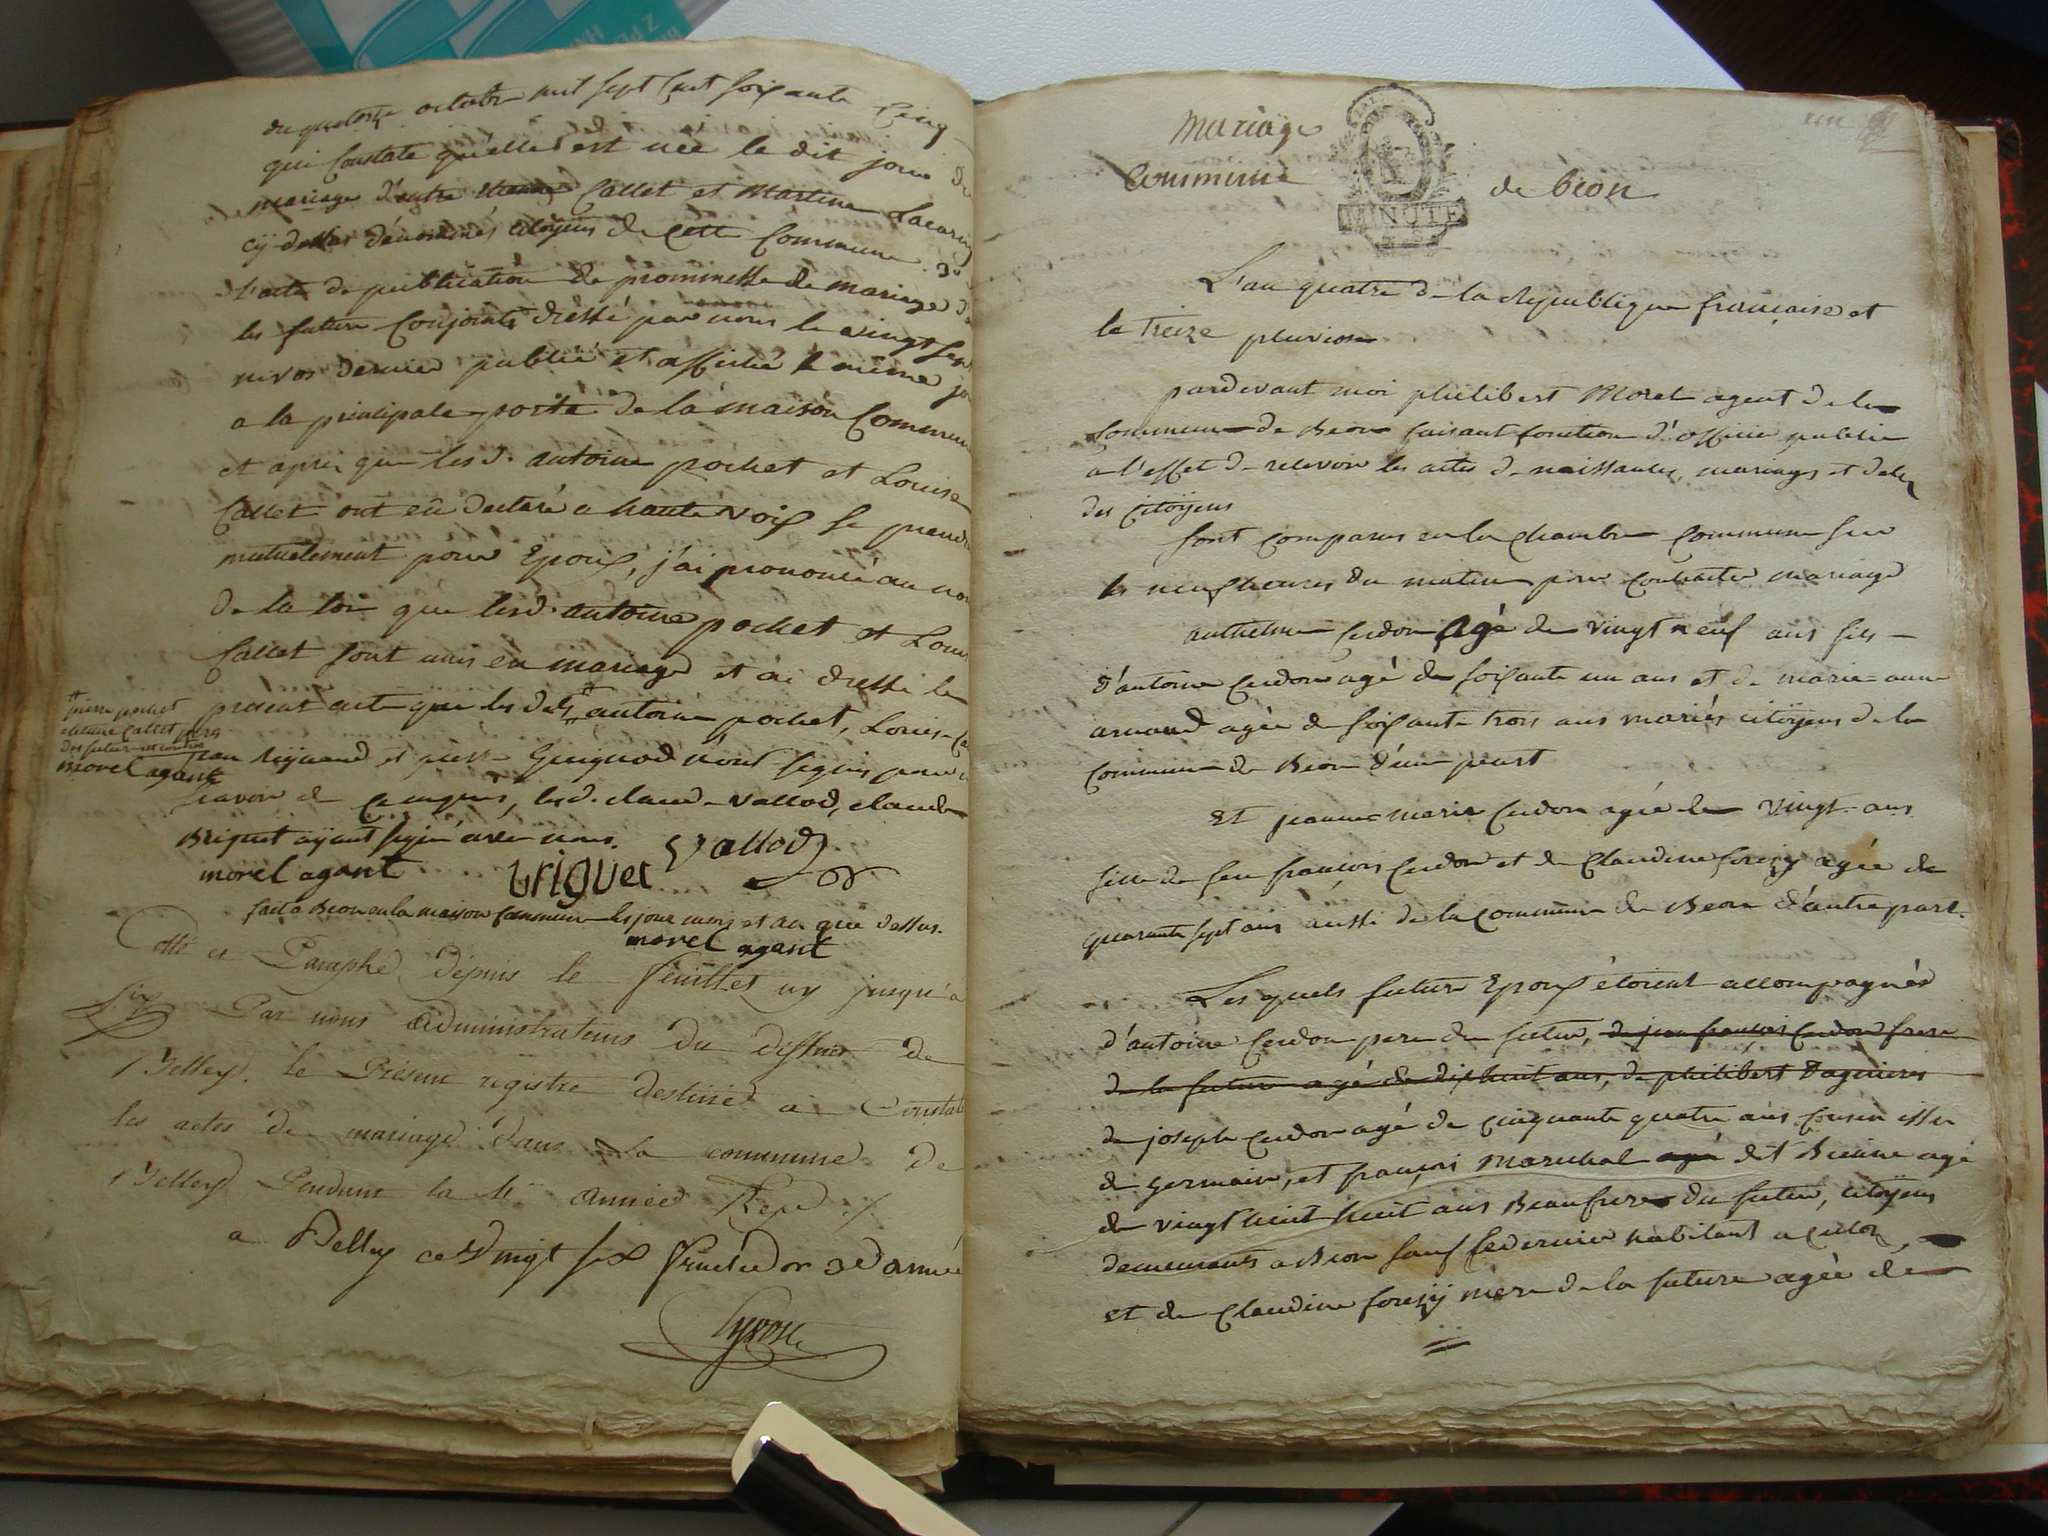 du quatorze octobre mil sept cent soixante cinq
qui Constate qu'elle est née le dit jour du
mariage d'entre Callet et Martine
cÿ dessus dénommés citoÿens de cette Commune 3º
l'acte de publication de prommesse de mariage de
les future Conjoints dressé par nous le vingt sept
nivos dernier publié et affiché le même jou
a la principale porte de la maison Commune
et apres que lesd. antoine pochet et Louise
Callet ont eû declaré a haute voix se prendre
mutuelement pour Epoux, j'ai prononcé au nom
de la loi que lesd. antoine pochet et Louise
Callet sont unis en mariage et ai dressé le
present acte que les dets antoine pochet, Louise Ca
pierre pochet
etienne Callet peres
des futur
morel agant
jean et pierre Guignod n'ont signés pour ne
savoir de ce enquis, lesd. claude Vallod, claude
Briguet aÿant signé avec nous.
morel agant briguet Vallod
fait a Beon en la maison Commune les jour mois et an que dessus.
morel agant
Cotté et Paraphé depuis le feuillet un jusqu'a
Six Par nous administrateurs du district de
Belley. le Présent registre destiné a Constater
les actes de mariage dans la commune de
Belley Pendant la 4e année Repe ./
a Belley ce Vingt six fructidor 3e année
mariage
Commune de beon
MINUTE
un
L'an quatre de la Republique française et
le treize pluviose
pardevant moi philibert Morel agent de la
Commune de Beon faisant fonction d'officier public
a l'effet de recevoir les actes de naissances, mariages et deces
des Citoÿens
sont comparus en la chambre Commune sur
les neuf heures du matin pour contracter mariage
anthelme Cerdon agé de vingt neuf ans fils
d'antoine Cerdon agé de soixante un ans et de marie anne
arnaud agée de soixante trois ans mariés citoÿens de la
Commune de Beon d'une part
et jeanne marie Cerdon agée de vingt ans
fille de feu françois Cerdon et de Claudine forest agée de
quarante sept ans aussi de la Commune de Beon d'autre part.
Les quels future Epoux étoient accompagnés
d'antoine Cerdon pere du futur, de jean françois Cerdon frere
de la future agé de dix huit ans, de philibert
de joseph Cerdon agé de cinquante quatre ans cousin issu
de germain, et françois marechal agé dit Bienne agé
de vingt huit huit ans Beaufrere du futur, citoÿens
demeurants a Beon sauf le dernier habitant a culoz,
et de Claudine forest mere de la future agée de